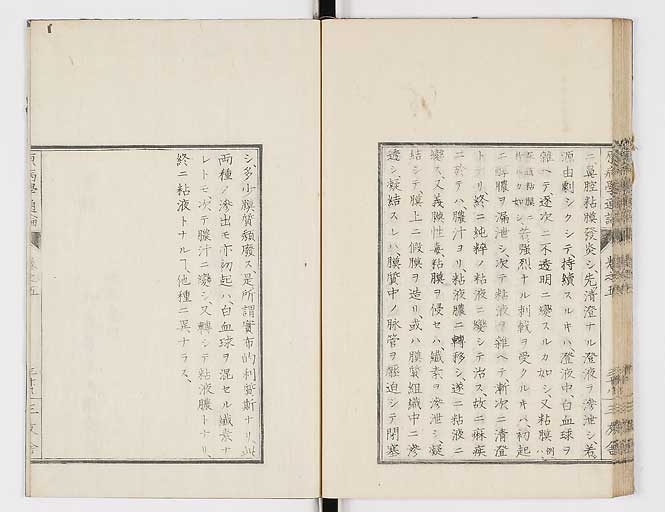 ニ鼻腔粘膜發炎シ先清澄ナル澄液ヲ滲泄シ、若
源由劇シクシテ、持續スルキハ、澄液中、白血球ヲ
雜ヘテ、逐次ニ不透明ニ變スルカ如シ、又粘膜
若強烈ナル刺戟ヲ受クルキハ、初起
ニ醇膿ヲ漏泄シ、次テ粘液ヲ雜ヘテ、漸次ニ清澄
トナリ終ニ純粹ノ粘液ニ變シテ治ス、故ニ麻疾
ニ於テハ、膿汁ヨリ、粘液膿ニ轉移シ、遂ニ粘液ニ
變ス、又義膜性毒、粘膜ヲ侵セハ、纖素ヲ滲泄シ、凝
結シテ、膜上ニ假膜ヲ造リ或ハ膜質組織中ニ滲
透シ、凝結スレハ、膜質中ノ脉管ヲ壓迫シテ閉塞
シ、多少膜質頽廢ス、是所謂實布的利質斯ナリ、此
兩種ノ滲出モ亦初起ハ、白血球ヲ混セル纖素ナ
レトモ、次テ膿汁ニ變シ、又轉シテ粘液膿トナリ、
終ニ粘液トナルヿ、他種ニ異ナラス、